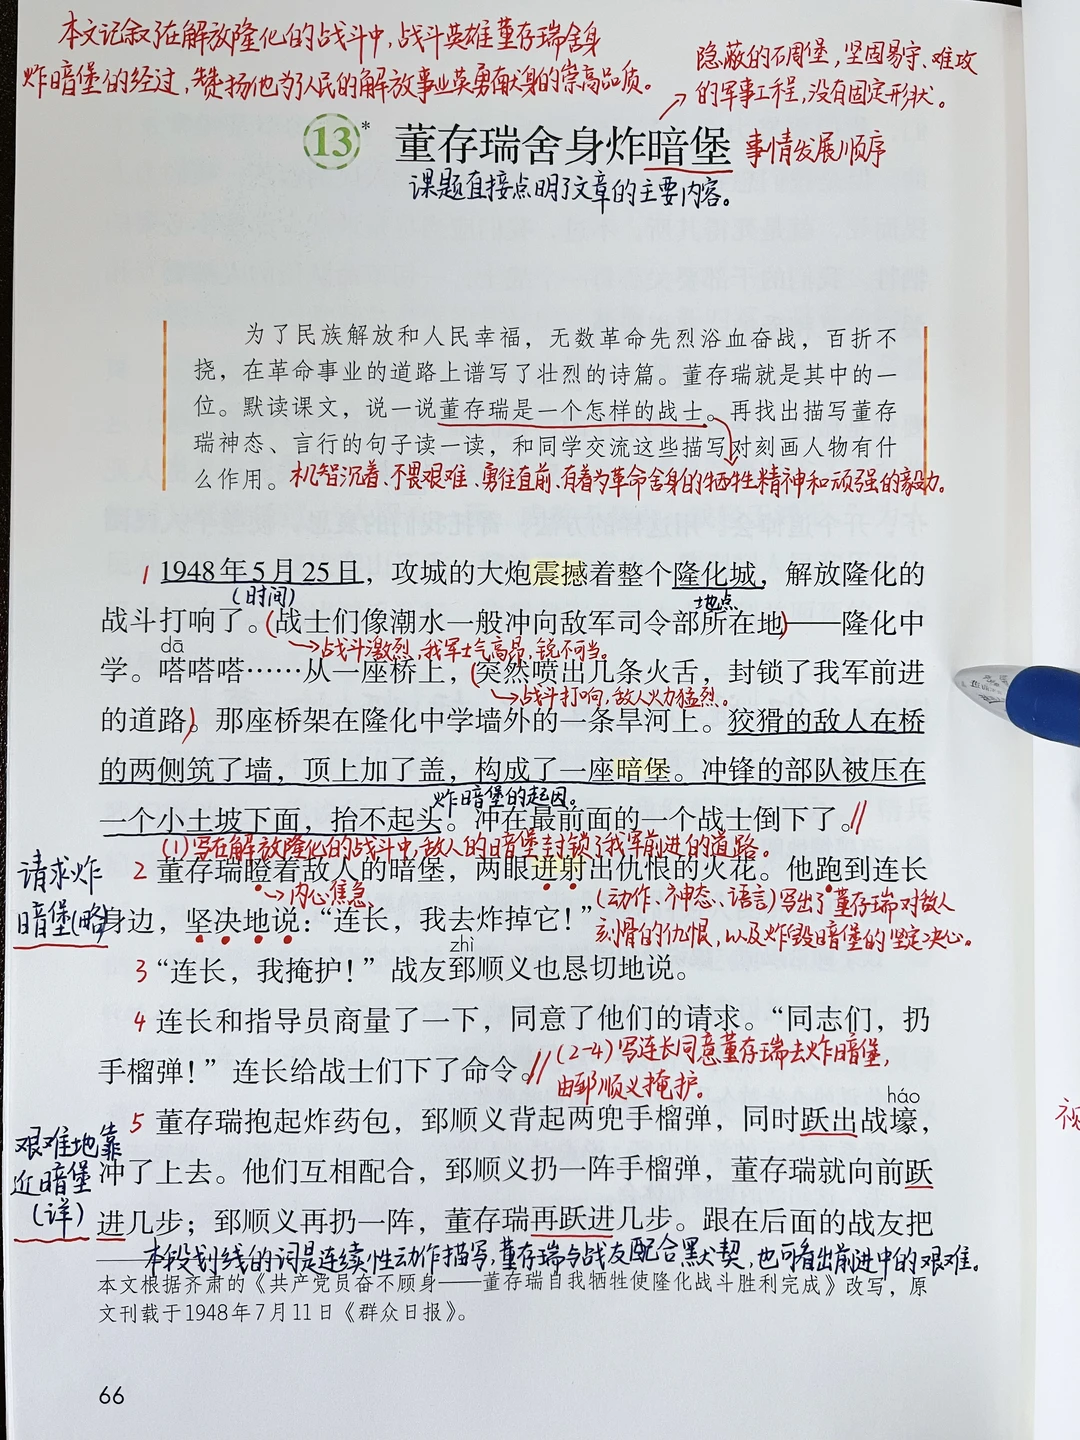 本文记叙了在解放隆化的战斗中,战斗英雄董存瑞舍身
炸暗堡的经过,赞扬他为了人民的解放事业英勇献身的崇高品质。
隐蔽的石周堡,坚固易守、难攻
的军事工程,没有固定形状。
13* 董存瑞舍身炸暗堡 事情发展顺序
课题直接点明了文章的主要内容。
为了民族解放和人民幸福，无数革命先烈浴血奋战，百折不
挠，在革命事业的道路上谱写了壮烈的诗篇。董存瑞就是其中的一
位。默读课文，说一说董存瑞是一个怎样的战士。再找出描写董存
瑞神态、言行的句子读一读，和同学交流这些描写对刻画人物有什
么作用。 机智沉着、不畏艰难、勇往直前、有着为革命舍身的牺牲精神和顽强的毅力。
1 1948年5月25日，攻城的大炮震撼着整个隆化城，解放隆化的
(时间)
地点
战斗打响了。(战士们像潮水一般冲向敌军司令部所在地)——隆化中
dā
→战斗激烈,我军士气高昂,锐不可当。
学。嗒嗒嗒……从一座桥上，(突然喷出几条火舌，封锁了我军前进
→战斗打响,敌人火力猛烈。
的道路)。那座桥架在隆化中学墙外的一条旱河上。狡猾的敌人在桥
的两侧筑了墙，顶上加了盖，构成了一座暗堡。冲锋的部队被压在
炸暗堡的起因。
一个小土坡下面，抬不起头。冲在最前面的一个战士倒下了。//
(1)写在解放隆化的战斗中,敌人的暗堡封锁了我军前进的道路。
请求炸
暗堡(略)
2 董存瑞瞪着敌人的暗堡，两眼迸射出仇恨的火花。他跑到连长
→内心焦急、
身边，坚决地说：“连长，我去炸掉它！”
(动作、神态、语言)写出了董存瑞对敌人
刻骨的仇恨,以及炸毁暗堡的坚定决心。
zhì
3 “连长，我掩护！”战友郅顺义也恳切地说。
4 连长和指导员商量了一下，同意了他们的请求。“同志们，扔
手榴弹！”连长给战士们下了命令。//
(2-4)写连长同意董存瑞去炸暗堡,
由郅顺义掩护。
háo
艰难地靠
近暗堡
(详)
5 董存瑞抱起炸药包，郅顺义背起两兜手榴弹，同时跃出战壕，
冲了上去。他们互相配合，郅顺义扔一阵手榴弹，董存瑞就向前跃
进几步；郅顺义再扔一阵，董存瑞再跃进几步。跟在后面的战友把
本段划线的词是连续性动作描写,董存瑞与战友配合默契,也可看出前进中的艰难。
本文根据齐肃的《共产党员奋不顾身——董存瑞自我牺牲使隆化战斗胜利完成》改写，原
文刊载于1948年7月11日《群众日报》。
66